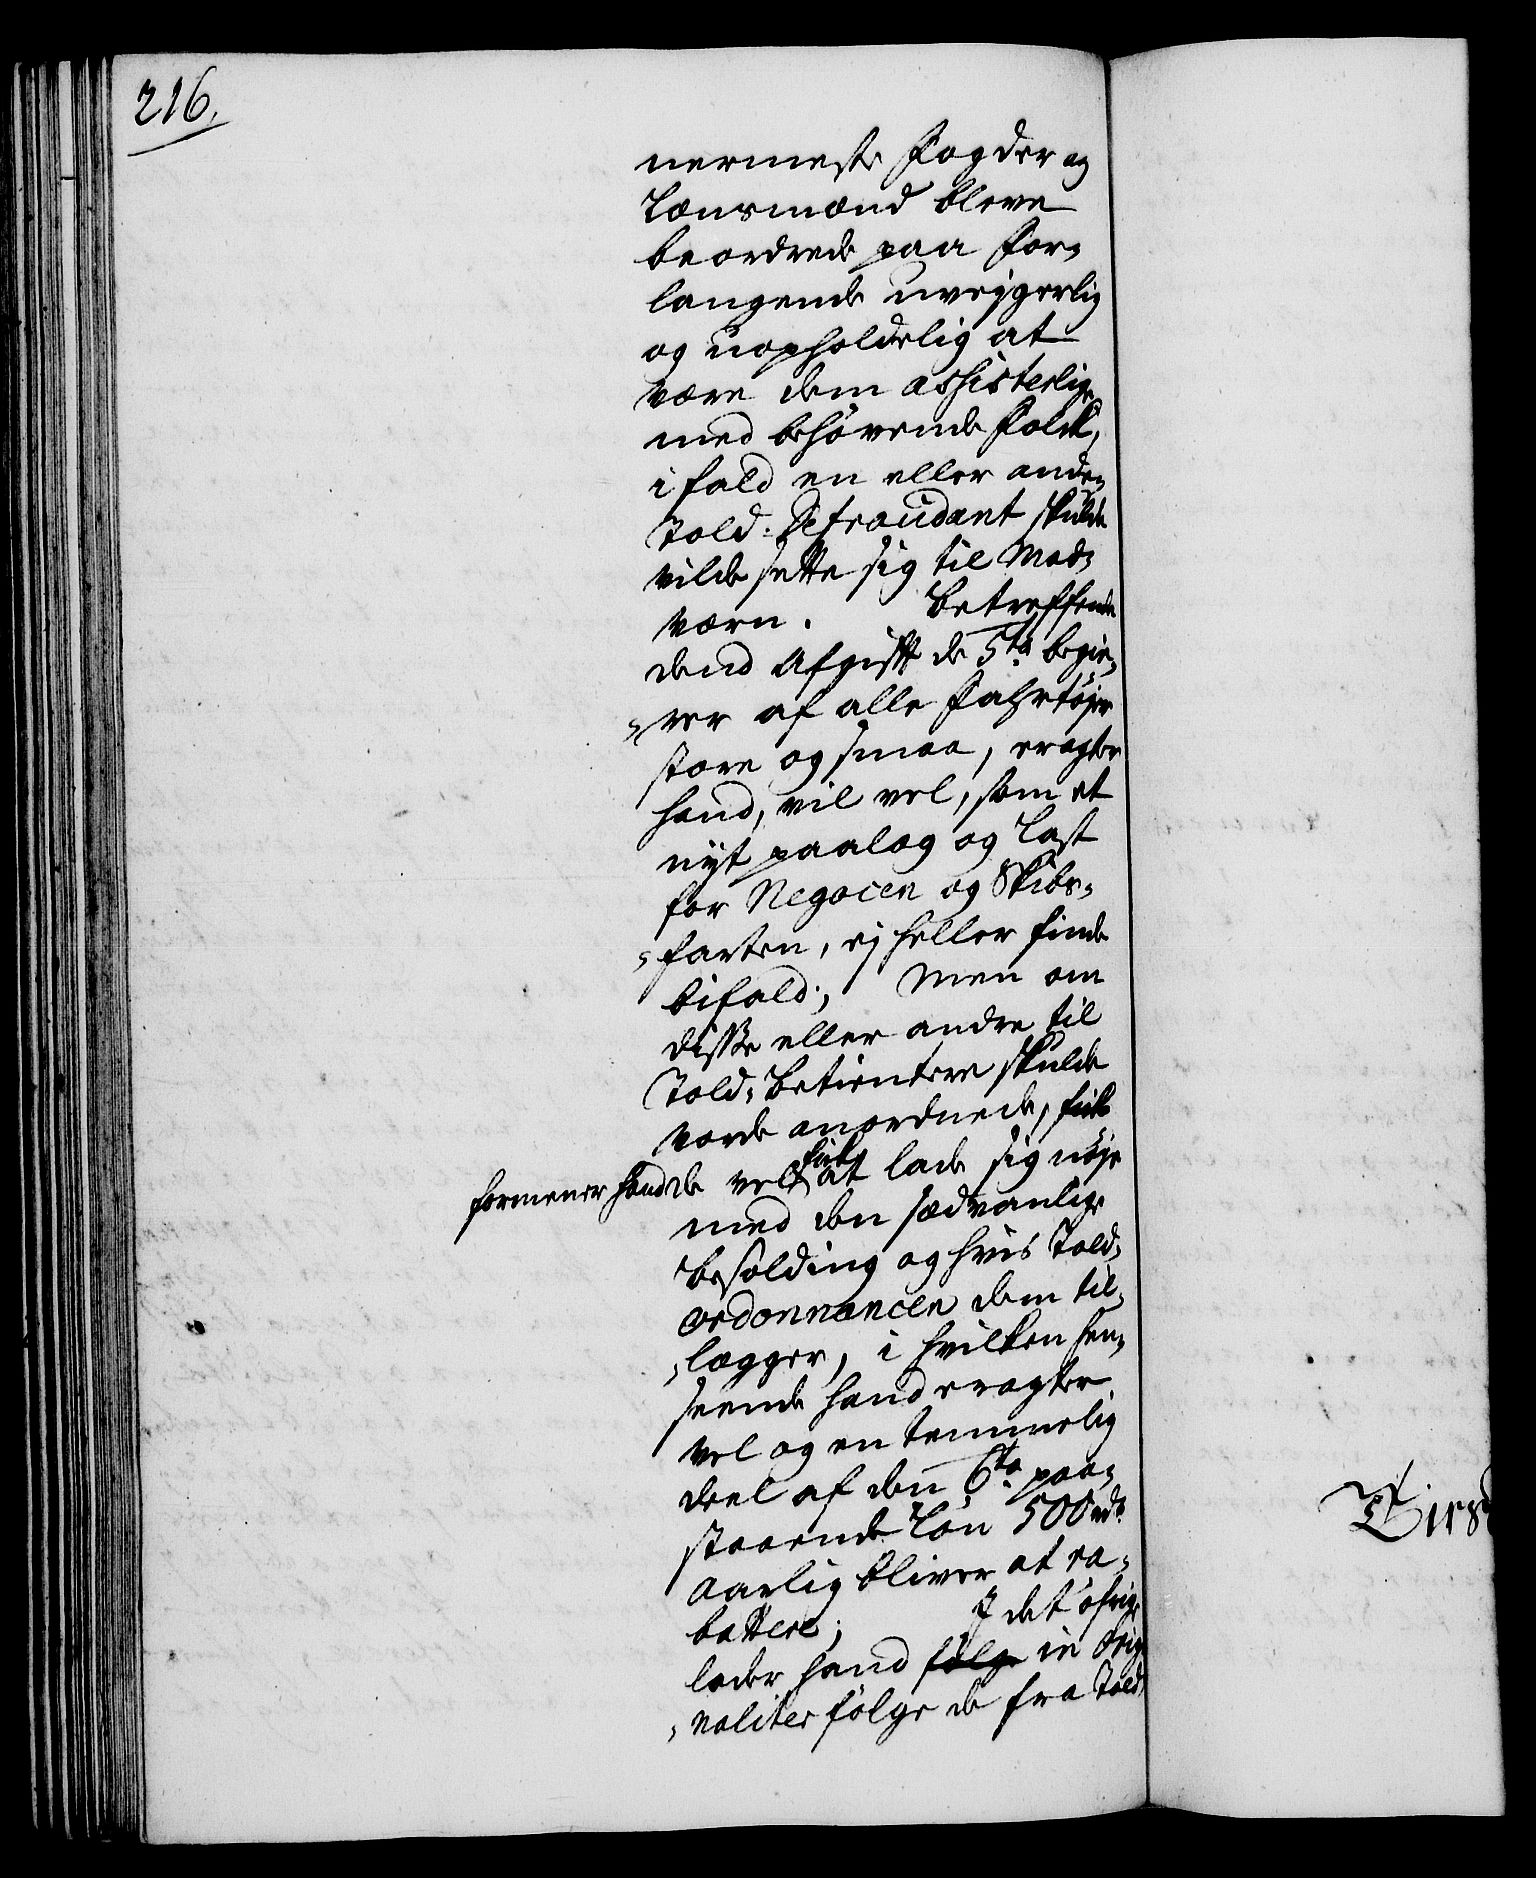 216.
nermeste Fogder og
Lænsmænd bleve
beordrede paa For-
langende uvejgerlig
og uopholdelig at
være dem assisterlige
med behøvende Folck,
i fald en eller anden
Told-Defraudant skulde
vilde sette sig til Mod-
værn. Betreffende
dend Afgift de 5te begie-
-rer af alle Fahrtøjer
store og smaa, eragter
hand, vil vel, som et
nyt paalæg og Last
for Negocen og Skibs-
-farten, ej heller finde
bifald; Men om
disse eller andre til
Told-Betientere skulde
vorde anordnede,
formener hand de vel at lade sig nøje
med den sædvanlige
besolding og hvis Told-
ordonnancen dem til-
-lægger, i hvilken hen-
seende hand eragter
vel og en temmelig
deel af den 6te paa-
staaende Løn 500 rdr.
aarlig bliver at ra-
battere; I det øfrige
lader hand følge in orig-
-naliter følge de fra Told-